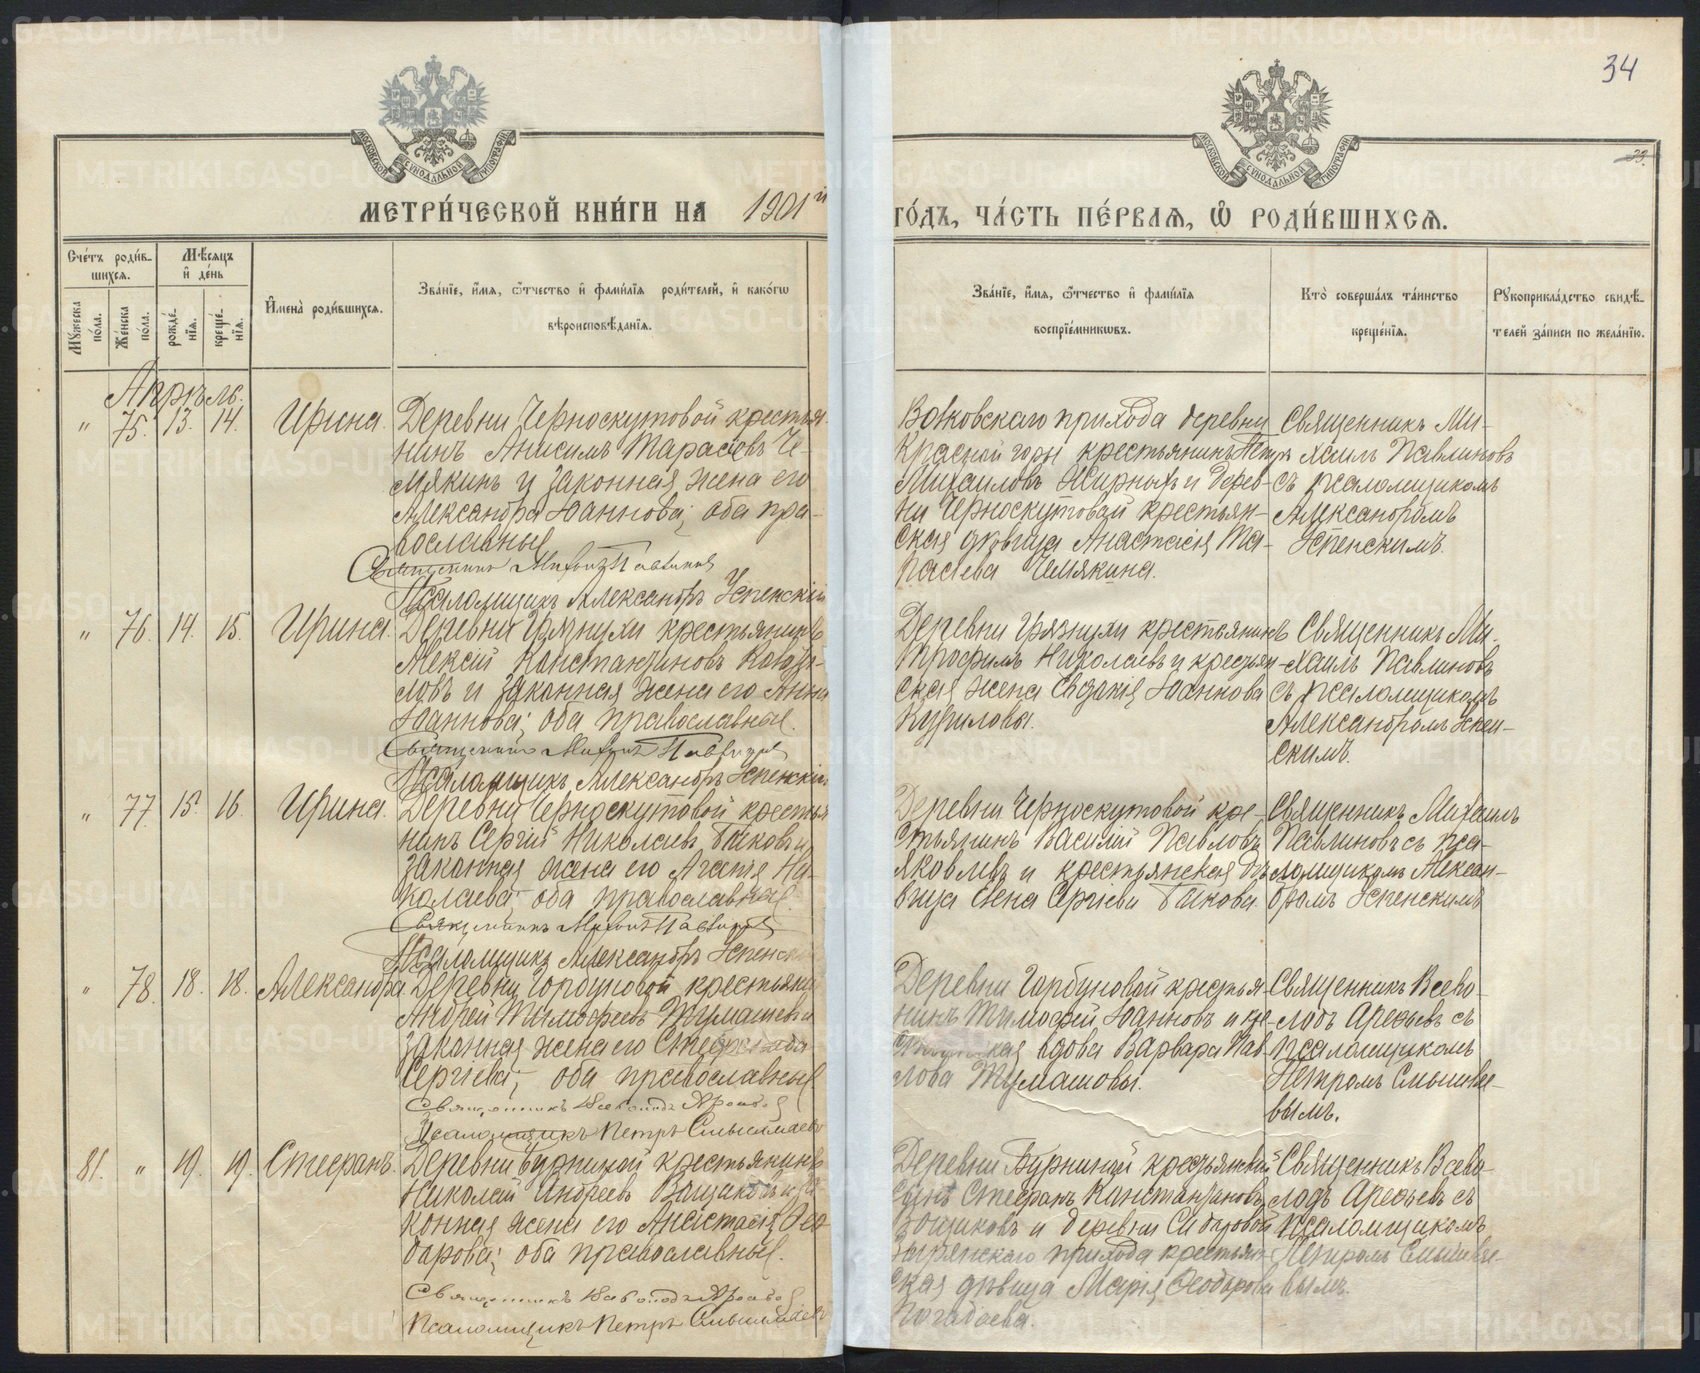 34
33.
МОСКОВСКОЙ СУНОДАЛЬНОЙ ТИПОГРАФІИ
МОСКОВСКОЙ СУНОДАЛЬНОЙ ТИПОГРАФІИ
МЕТРИ́ЧЕСКОЙ КНИ́ГИ НА 1901й
ГО́ДЪ, ЧА́СТЬ ПЕ́РВАѦ, Ѡ҆ РОДИ́ВШИХСѦ.
Сче́тъ роди́в-
шихсѧ.
Мꙋжеска
пола.
Же́нска
по́ла.
Мѣ́сяцъ
и҆ де́нь
рожде́-
нїѧ.
креще́-
нїѧ.
И҆мена̀ роди́вшихсѧ.
Зва́нїе, и҆́мѧ, ѻ҆́тчество и҆ фами́лїѧ роди́телей, и҆ како́гѡ
вѣроисповѣ́данїѧ.
Зва́нїе, и҆́мѧ, ѻ҆́тчество и҆ фами́лїѧ
воспрїе́мникѡвъ.
Кто̀ соверша́лъ та́инство
креще́нїѧ.
Рꙋкоприкла́дство свидѣ́-
телей за́писи по жела́нїю.
Апрѣль.
" 75. 13. 14. Ирина.
Деревни Черноскутовой крестья-
нинъ Анисимъ Тарасовъ Че-
мякинъ и законная жена его
Александра Іоаннова; оба пра-
вославные
Священникъ Михаилъ Павлиновъ
Псаломщикъ Александръ Успенскій
прихода деревни
Красной горы крестьянинъ Петръ
Михаиловъ и дерев-
ни Черноскутовой крестьян-
ская дѣвица Анастасія Та-
расиева Чемякина.
Священникъ Ми-
хаилъ Павлиновъ
съ псаломщикомъ
Александромъ
Успенскимъ.
" 76. 14. 15. Ирина.
Деревни Грязнухи крестьянинъ
Алексій Константиновъ
и законная жена его Анна
Іоаннова; оба православные.
Священникъ Михаилъ Павлиновъ
Псаломщикъ Александръ Успенскій
Деревни Грязнухи крестьянинъ
Трофимъ Николаевъ и крестьян-
ская жена Евдокія Іоаннова
Кириловы.
Священникъ Ми-
хаилъ Павлиновъ
съ псаломщикомъ
Александромъ Успен-
скимъ.
" 77. 15. 16. Ирина.
Деревни Черноскутовой крестья
нинъ Сергій Николаевъ Быковъ и
законная жена его Агапія Ни-
колаева; оба православные.
Священникъ Михаилъ Павлиновъ
Псаломщикъ Александръ Успенскій
Деревни Черноскутовой кре-
стьянинъ Василій Павловъ
Яковлевъ и крестьянская дѣ-
вица Елена Сергіева Быкова.
Священникъ Михаилъ
Павлиновъ съ пса-
ломщикомъ Алексан-
дромъ Успенскимъ
" 78. 18. 18. Александра
Деревни Горбуновой крестьянин
Андрей Тимофеевъ Тумашевъ и
законная жена его
Сергіева; оба православные
Священникъ Всеволодъ Арефьевъ
Псаломщикъ Петръ Смышляевъ
Деревни Горбуновой крестья-
нинъ Тимофей Іоанновъ и кре-
стьянская вдова Варвара Пав-
лова Тумашовы.
Священникъ Всево-
лодъ Арефьевъ съ
псаломщикомъ
Петромъ Смышляе-
вымъ.
81. " 19. 19. Стефанъ.
Деревни крестьянинъ
Николай Андреевъ и за
конная жена его Анастасія Ѳео
дорова; оба православные.
Священникъ Всеволодъ Арефьевъ
Псаломщикъ Петръ Смышляевъ
Деревни крестьянскій
сынъ Стефанъ Константиновъ
и деревни Сидоровой
прихода крестьян-
ская дѣвица Марія Ѳеодорова
Священникъ Всево-
лодъ Арефьевъ съ
псаломщикомъ
Петромъ Смышляе-
вымъ.
METRIKI.GASO-URAL.RU